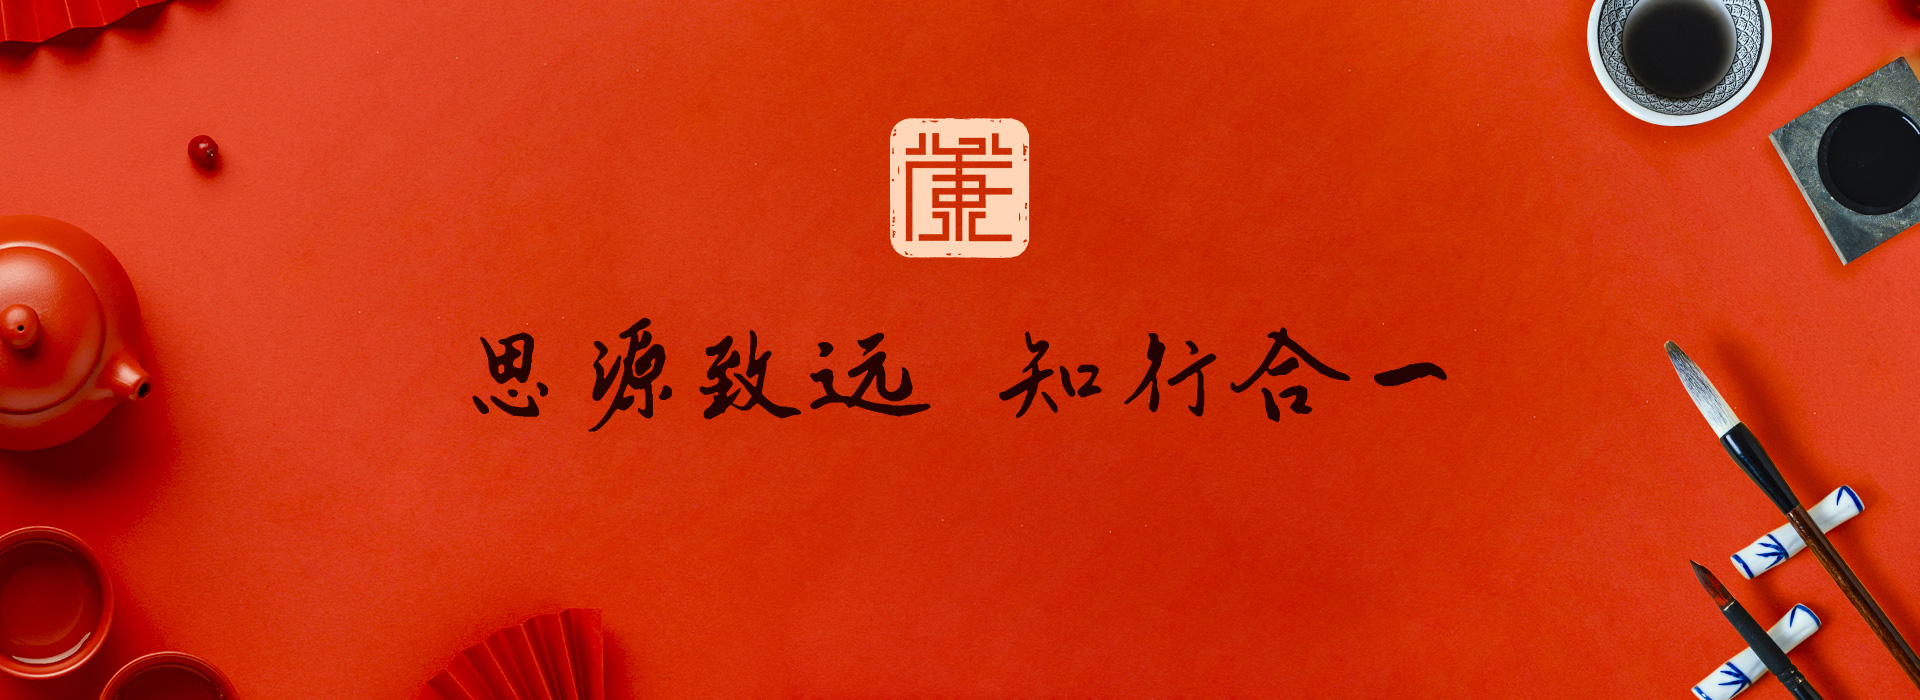 思源致远 知行合一